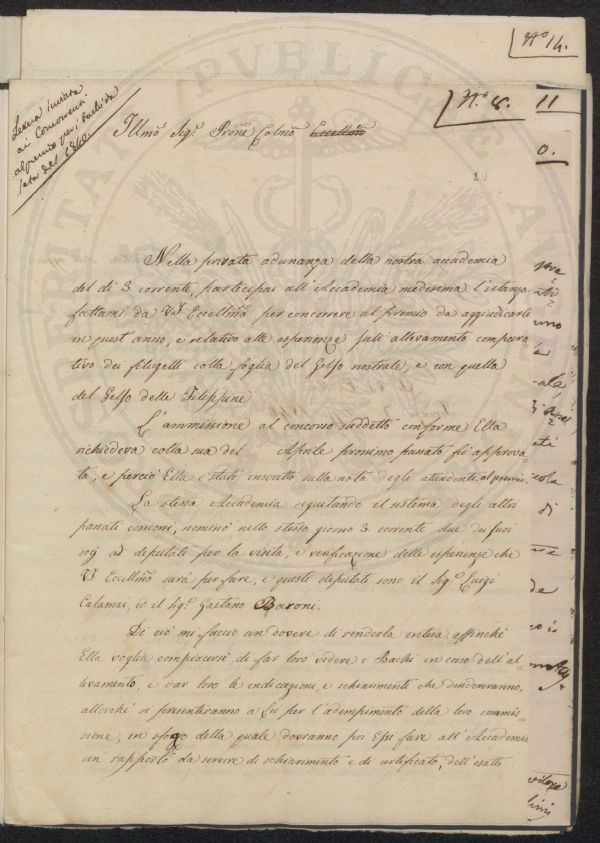 N.º 14.
N.º 8.
11
0.
Lettera inviata
ai Concorrenti
al premio per
del 1840.
Illmo Sig.e Prone Colmo Eccellmo
Nella privata adunanza della nostra accademia
del di 3 corrente, partecipai all'Accademia medesima l'istanza
fattami da V.S. Eccellma per concorrere al premio da aggiudicarsi
in quest'anno, e relativo alle esperienze sull'allevamento compara
tivo dei filugelli colla foglia del Gelso nostrale, e con quella
del Gelso delle Filippine
L'ammissione al concorso suddetto conforme Ella
richiedeva colla sua del Aprile prossimo passato fù approva
ta, e perciò Ella è stato inscritto sulla nota degli attendenti al premio.
La stessa Accademia seguitando il sistema degli altri
passati concorsi, nominò nello stesso giorno 3 corrente due dei suoi
sogj a deputati per la visita, e verificazione delle esperienze che
V.S. Eccellma sarà per fare, e questi deputati sono il Sig.e Luigi
Calamai, ed il Sig.e Gaetano Baroni.
Di ciò mi faccio un dovere di renderla intesa affinchè
Ella voglia compiacersi di far loro vedere i Bachi in corso dell'al
levamento, e dar loro le indicazioni, e schiarimenti che desidereranno,
allorchè si presenteranno a Lei per l'adempimento della loro commis
sione, in sfogo della quale dovranno poi Essi fare all'Accademia
un rapporto da servire di schiarimento e di certificato, dell'esatto
SVMPTIBVS PUBLICAE